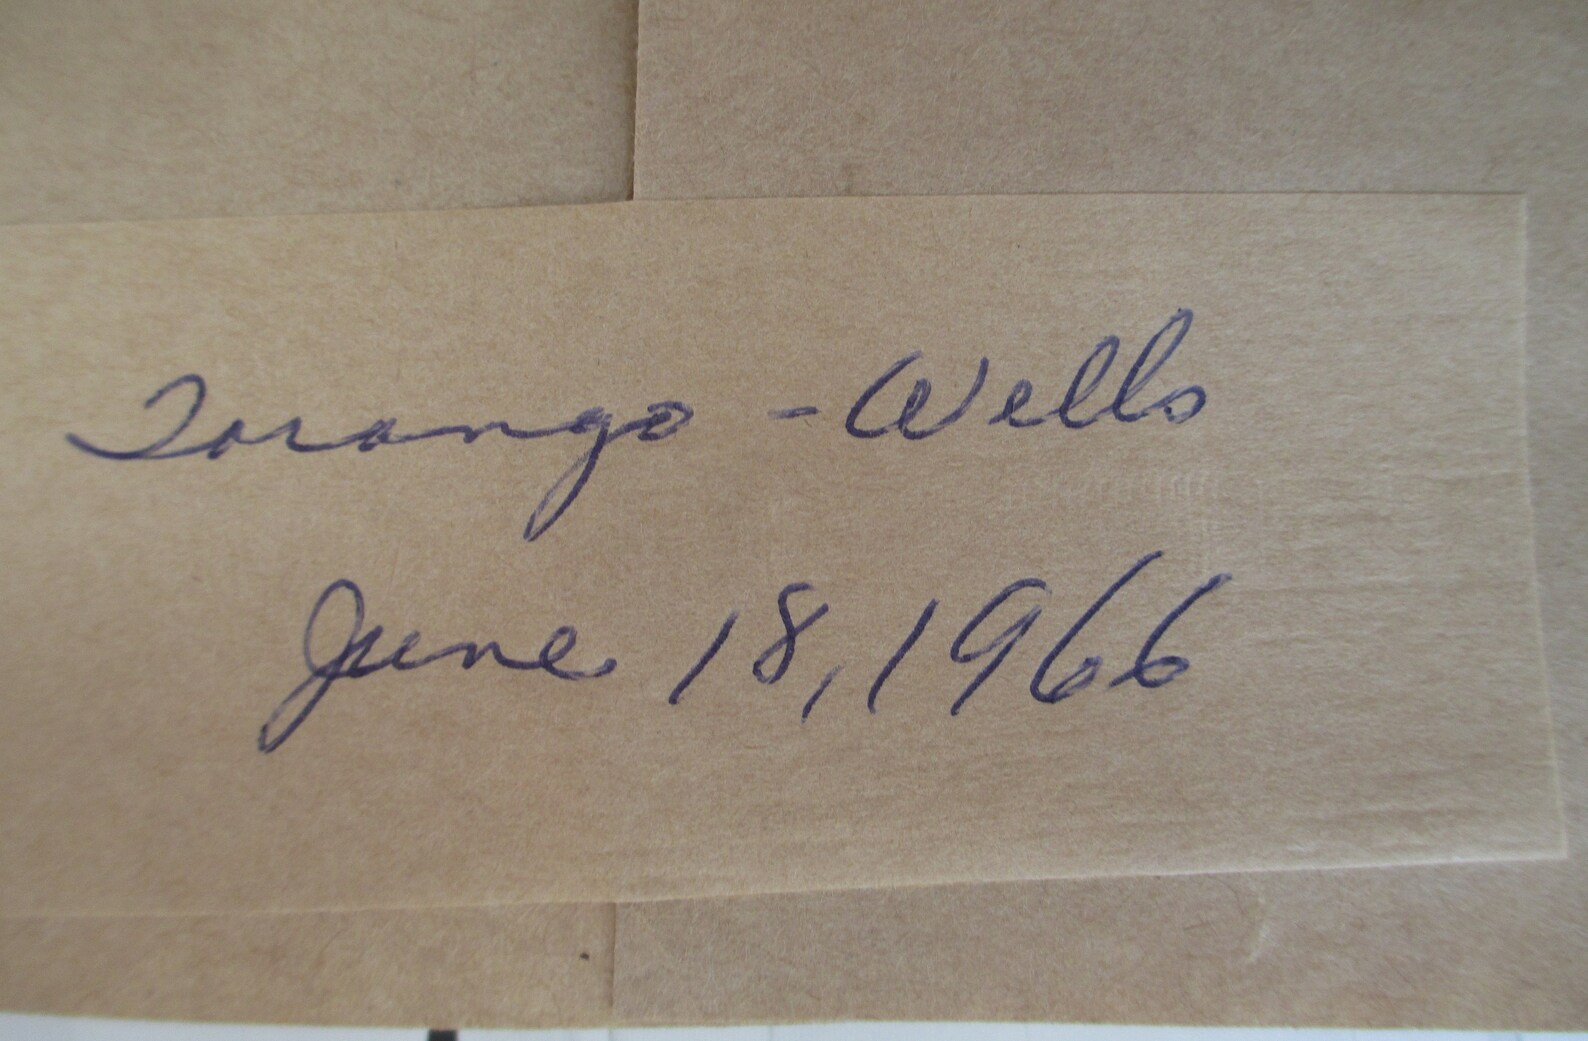 Torango - Wells
June 18, 1966